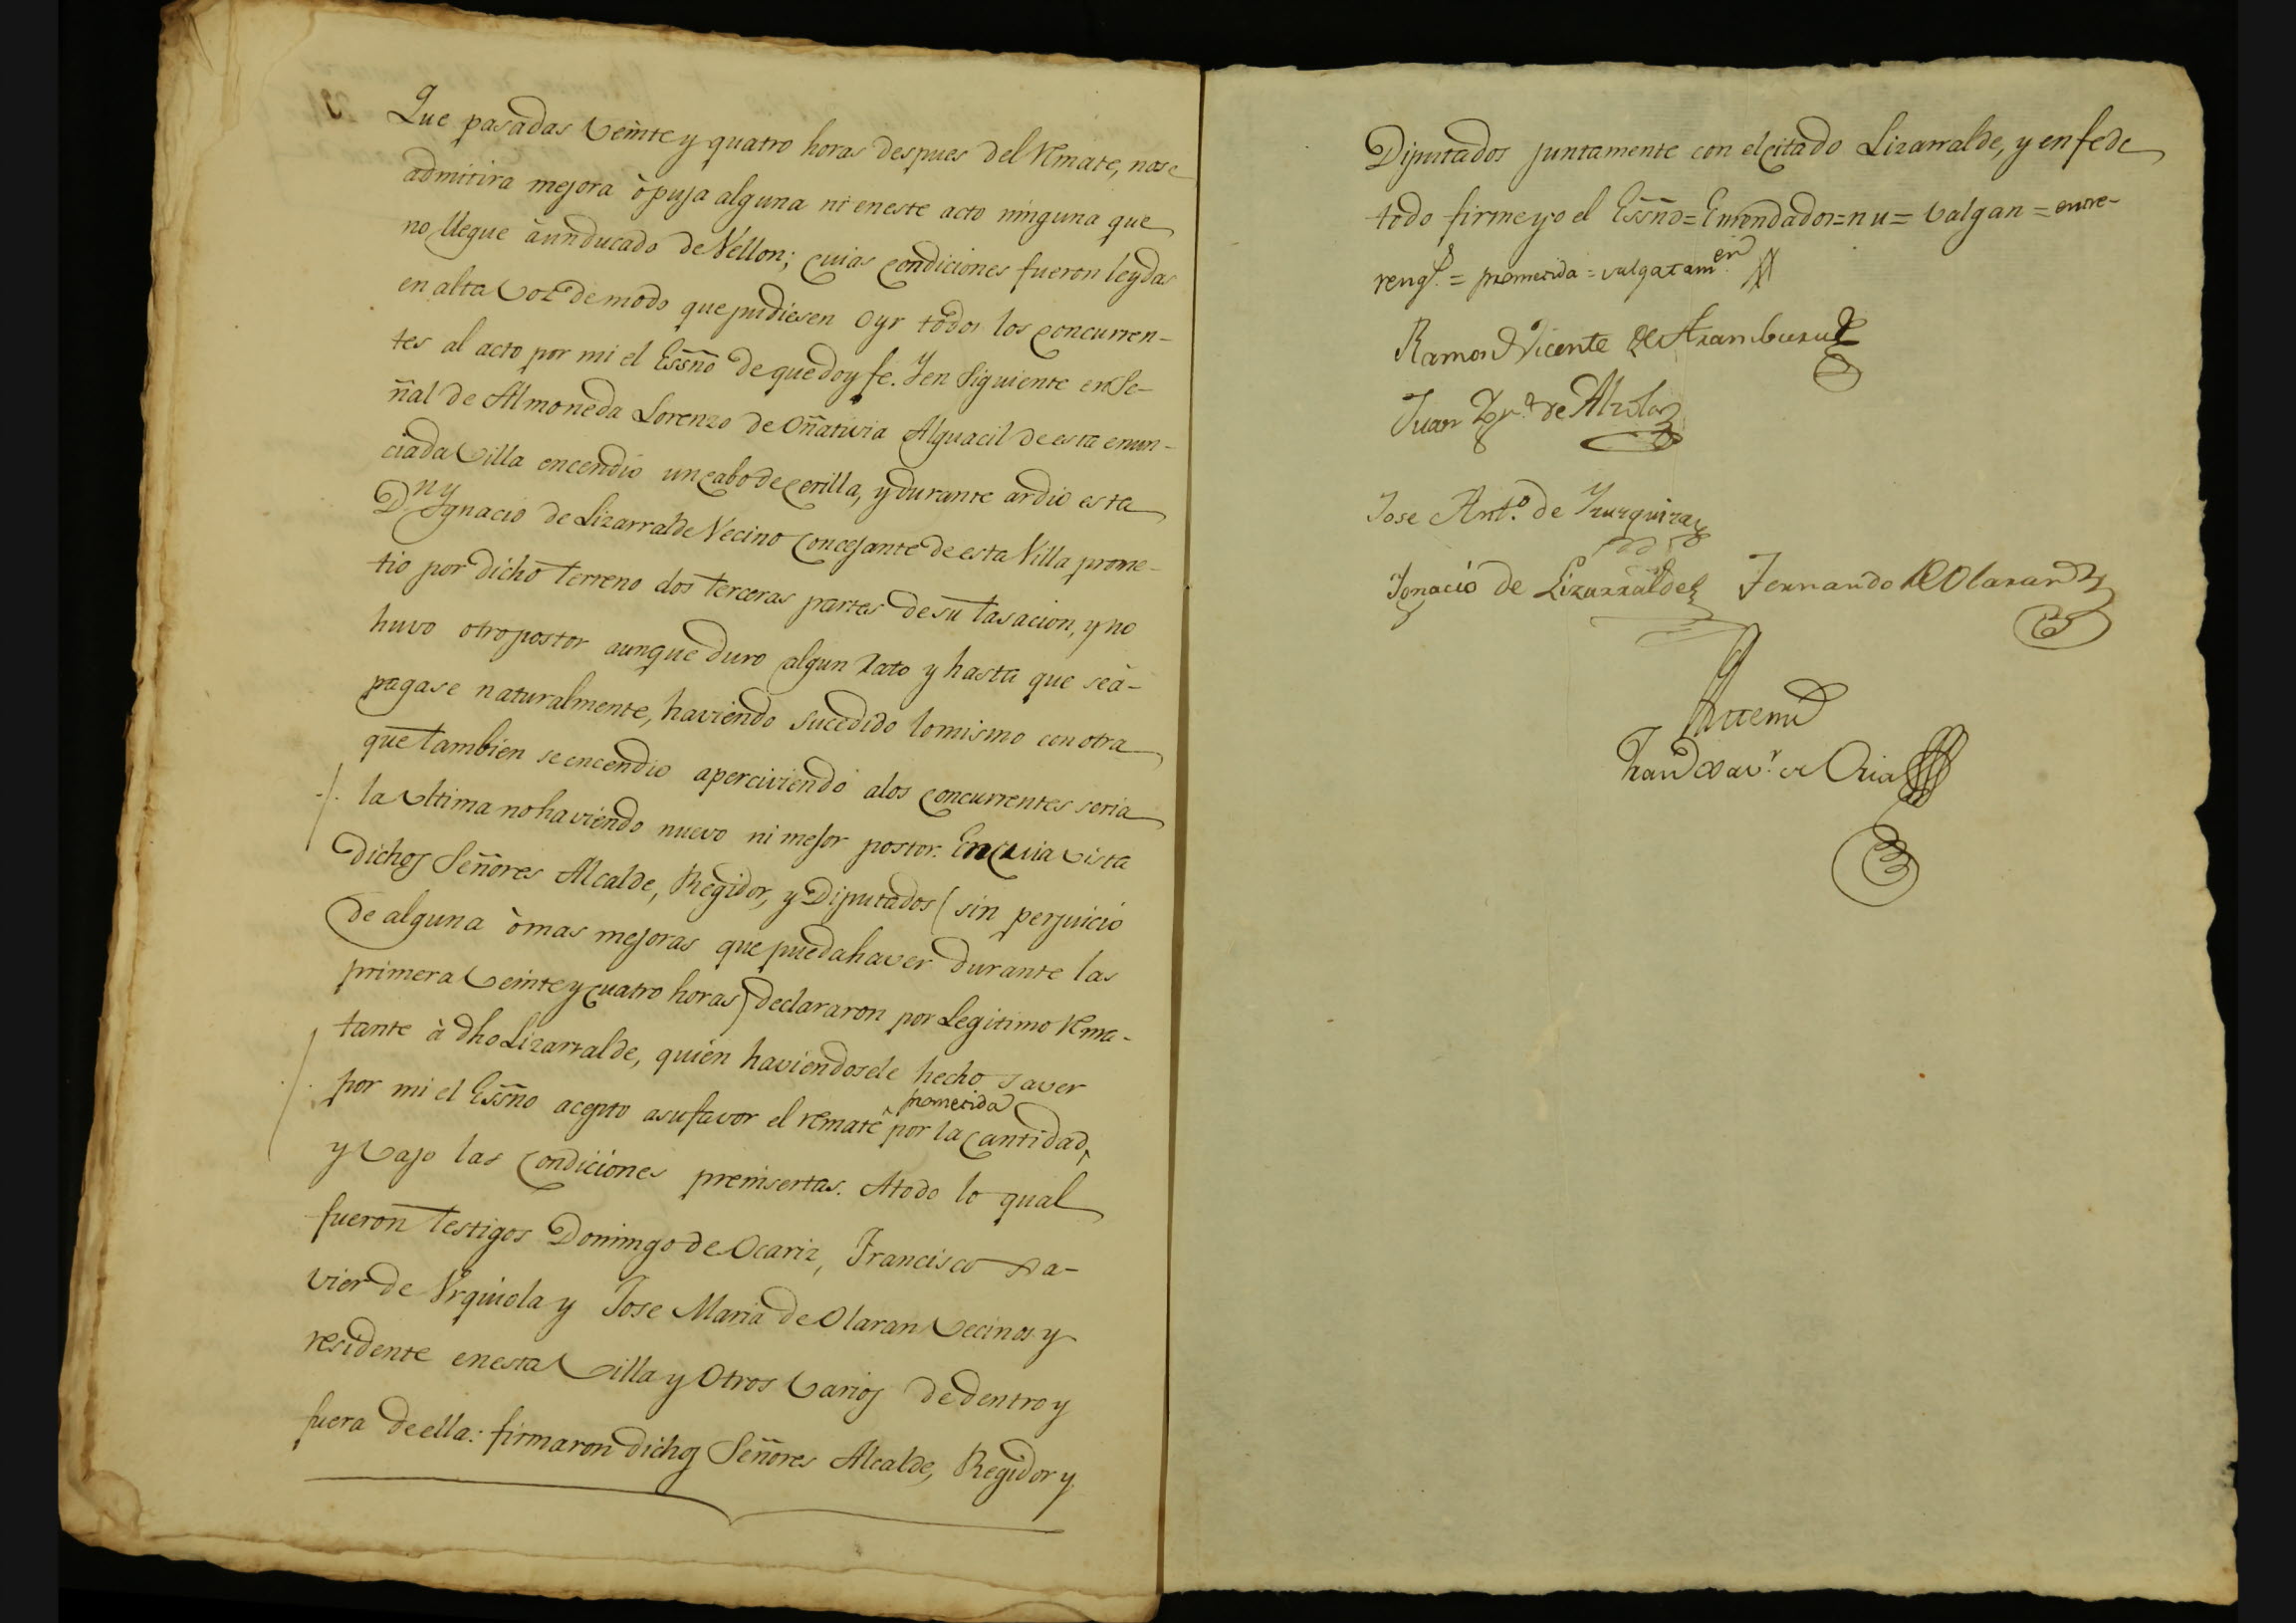 Que pasadas veinte y quatro horas despues del Rmate, nose
admitira mejora ò puja alguna ni eneste acto ninguna que
no llegue à un ducado de Vellon; cuias condiciones fueron leydas
en alta voz de modo que pudiesen oyr todos los concurren-
tes al acto por mi el Essño de que doy fe. Y en siguiente en se-
ñal de Almoneda Lorenzo de Oñativia Alguacil de esta enun-
ciada villa encendio un cabo de cerilla, y durante ardio esta
Dn Ygnacio de Lizarralde Vecino concejante de esta Villa prome-
tio por dicho terreno dos terceras partes de su tasacion, y no
huvo otro postor aunque duro algun rato y hasta que seà-
pagase naturalmente, haviendo sucedido lo mismo con otra
que tambien se encendio aperciviendo alos concurrentes seria
la ultima no haviendo nuevo ni mejor postor. En cuia vista
dichos Señores Alcalde, Regidor, y Diputados (sin perjuicio
de alguna òmas mejoras que pueda haver durante las
primera veinte y cuatro horas) declararon por Legitimo Rma-
tante à dho Lizarralde, quien haviendosele hecho saver
por mi el Essño acepto asu favor el remate por la cantidad
prometida
y vajo las condiciones preinsertas. Atodo lo qual
fueron testigos Domingo de Ocariz, Francisco Xa-
vier de Urquiola y Jose Maria de Olaran vecinos y
residente enesta villa y otros varios de dentro y
fuera de ella: firmaron dichos Señores Alcalde, Regidor y
Diputados juntamente con el citado Lizarralde, y en fe de
todo firme yo el Essño = Enmendados = n u = valgan = entre-
rengs. = prometida = valga tamen
Ramon Vicente de Aramburu
Juan de Alzola
Jose Anto. de Yzurquiza
Ignacio de Lizarralde Fernando de Olaran
Ante mi
Fran Xavr. de Oria